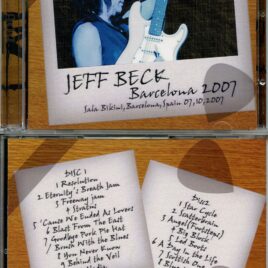 JEFF BECK
Barcelona 2007
Sala Bikini, Barcelona, Spain 07,10,2007
DISC 1
1 Resolution
2 Eternity's Breath Jam
3 Freeway Jam
4 Stratus
5 'Cause We Ended As Lovers
6 Blast From The East
7 Goodbye Pork Pie Hat
8 Brush With the Blues
9 You Never Know
0 Behind the Veil
Disc2
1 Star Cycle
2 Scatterbrain
3 Angel(Footsteps)
4 Big Block
5 Led Boots
6 A Day In the Life